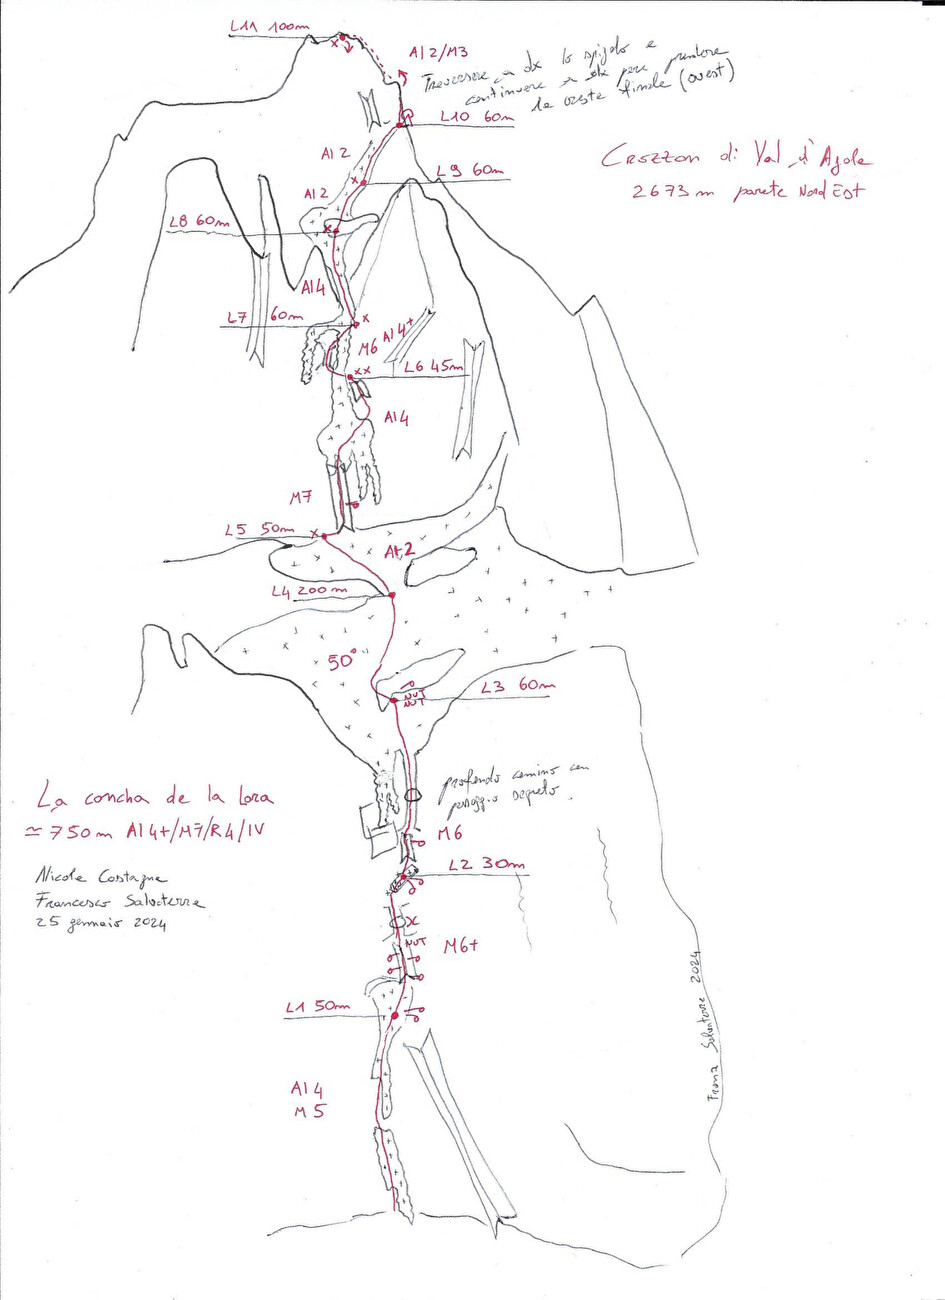 L11 100m
AI2/M3
Traversare a dx lo spigolo e
continuare a dx per prendere
la cresta finale (ovest)
L10 60m
Crozzon di Val d'Agola
2673 m parete Nord Est
AI2
L9 60m
AI2
L8 60m
AI4
L7 60m
x
M6
AI4+
xx
L6 45m
AI4
M7
L5 50m
x
AI2
L4 200m
50°
L3 60m
NUT
NUT
profondo camino con
passaggio segreto.
La concha de la lora
≃ 750m AI4+/M7/R4/IV
M6
L2 30m
Nicola Castagna
Francesco Salvaterra
25 gennaio 2024
x
NUT
M6+
L1 50m
Franz Salvaterra 2024
AI4
M5